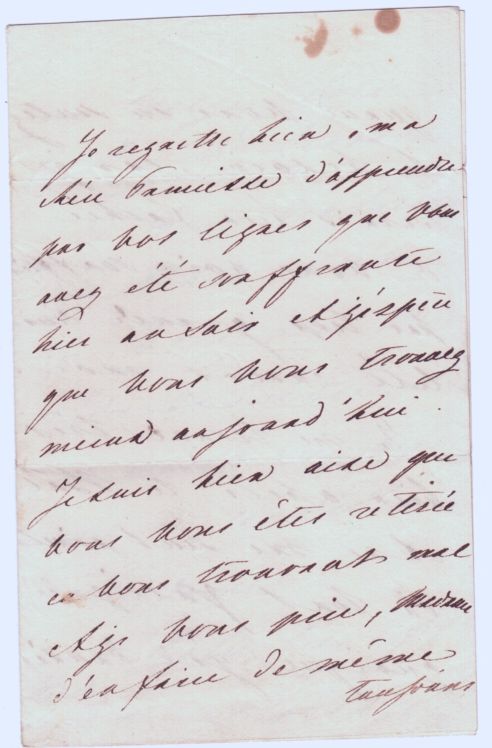 Je regrette bien, ma
chère Princesse d'apprendre
par vos lignes que vous
avez été souffrante
hier au soir et j'espère
que vous vous trouvez
mieux aujourd'hui.
Je suis bien aise que
vous vous êtes retirée
en vous trouvant mal
et je vous prie, Madame
d'en faire de même
toujours